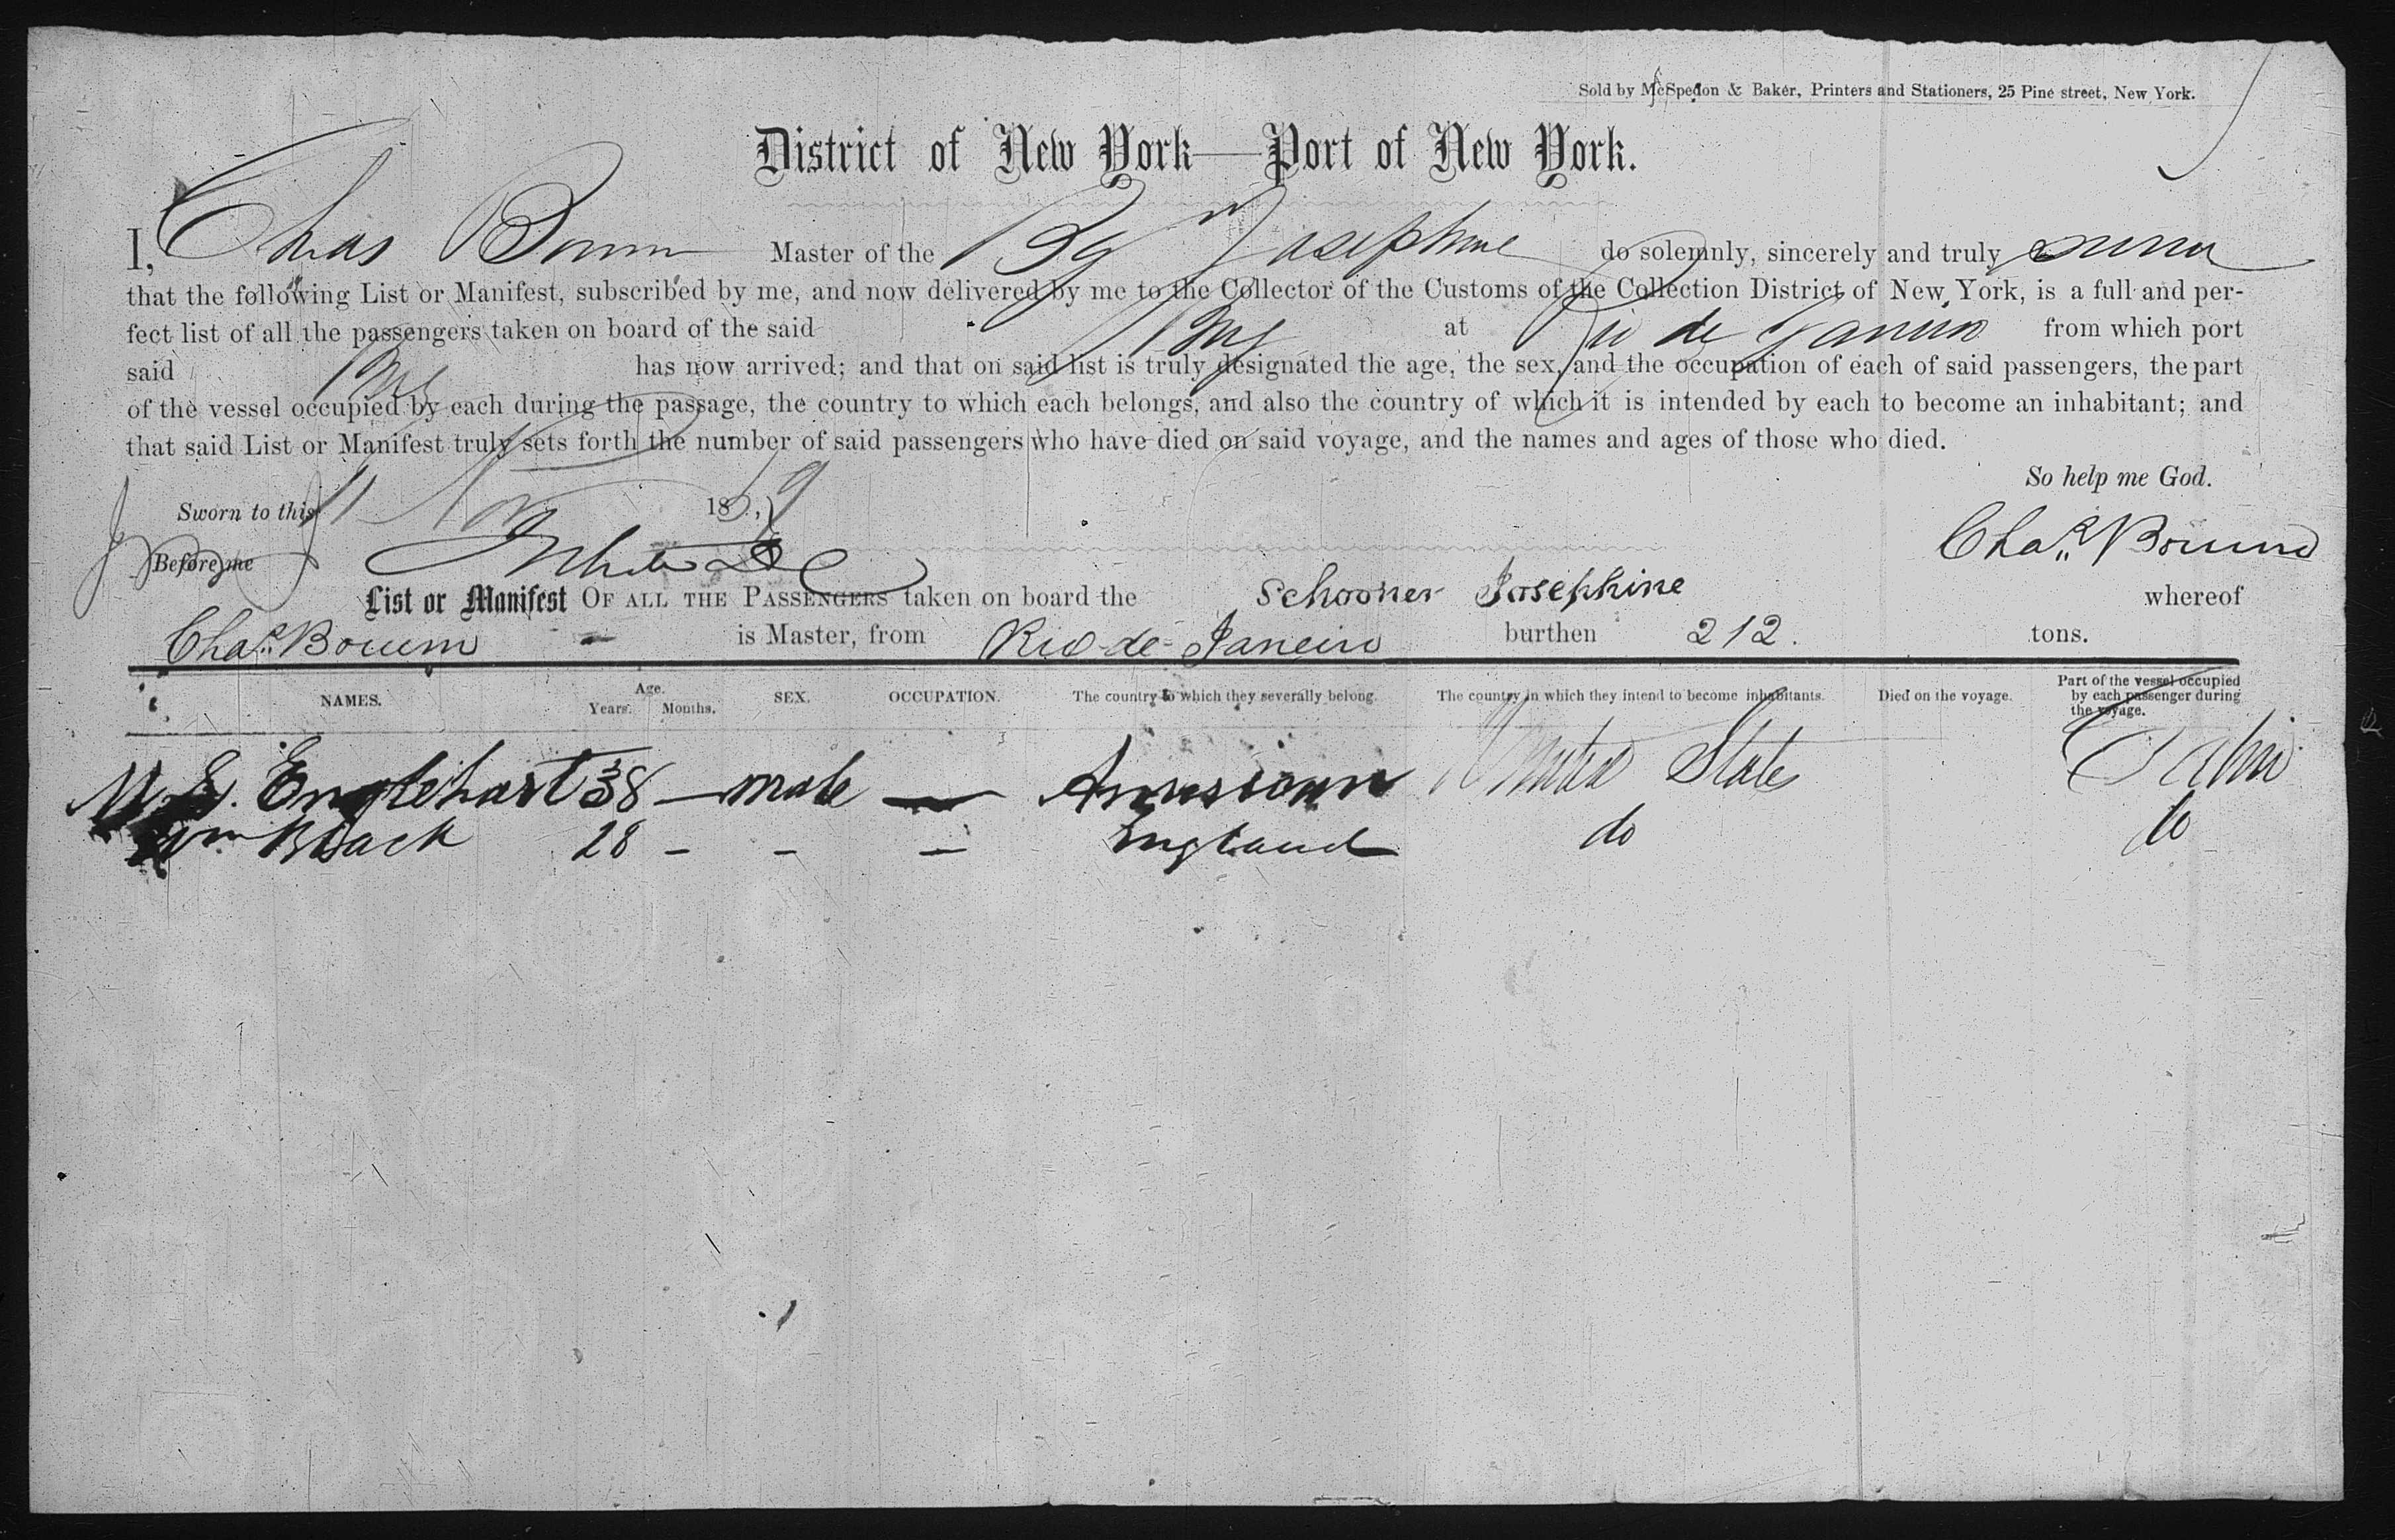 Sold by McSpedon & Baker, Printers and Stationers, 25 Pine street, New York.
District of New York—Port of New York.
I, Chas Master of the Bg Josephine do solemnly, sincerely and truly
that the following List or Manifest, subscribed by me, and now delivered by me to the Collector of the Customs of the Collection District of New York, is a full and per-
fect list of all the passengers taken on board of the said Brig at Rio de Janeiro from which port
said Brig has now arrived; and that on said list is truly designated the age, the sex, and the occupation of each of said passengers, the part
of the vessel occupied by each during the passage, the country to which each belongs, and also the country of which it is intended by each to become an inhabitant; and
that said List or Manifest truly sets forth the number of said passengers who have died on said voyage, and the names and ages of those who died.
So help me God.
Sworn to this 11 Nov 1859
Before me
Chas.
List or Manifest OF ALL THE PASSENGERS taken on board the Schooner Josephine whereof
Chas. is Master, from Rio-de-Janeiro burthen 212. tons.
NAMES. Age. Years. Months. SEX. OCCUPATION. The country to which they severally belong. The country in which they intend to become inhabitants. Died on the voyage. Part of the vessel occupied by each passenger during the voyage.
Englehart 38 — male — American United States Cabin
Wm Black 28 - - - England do do